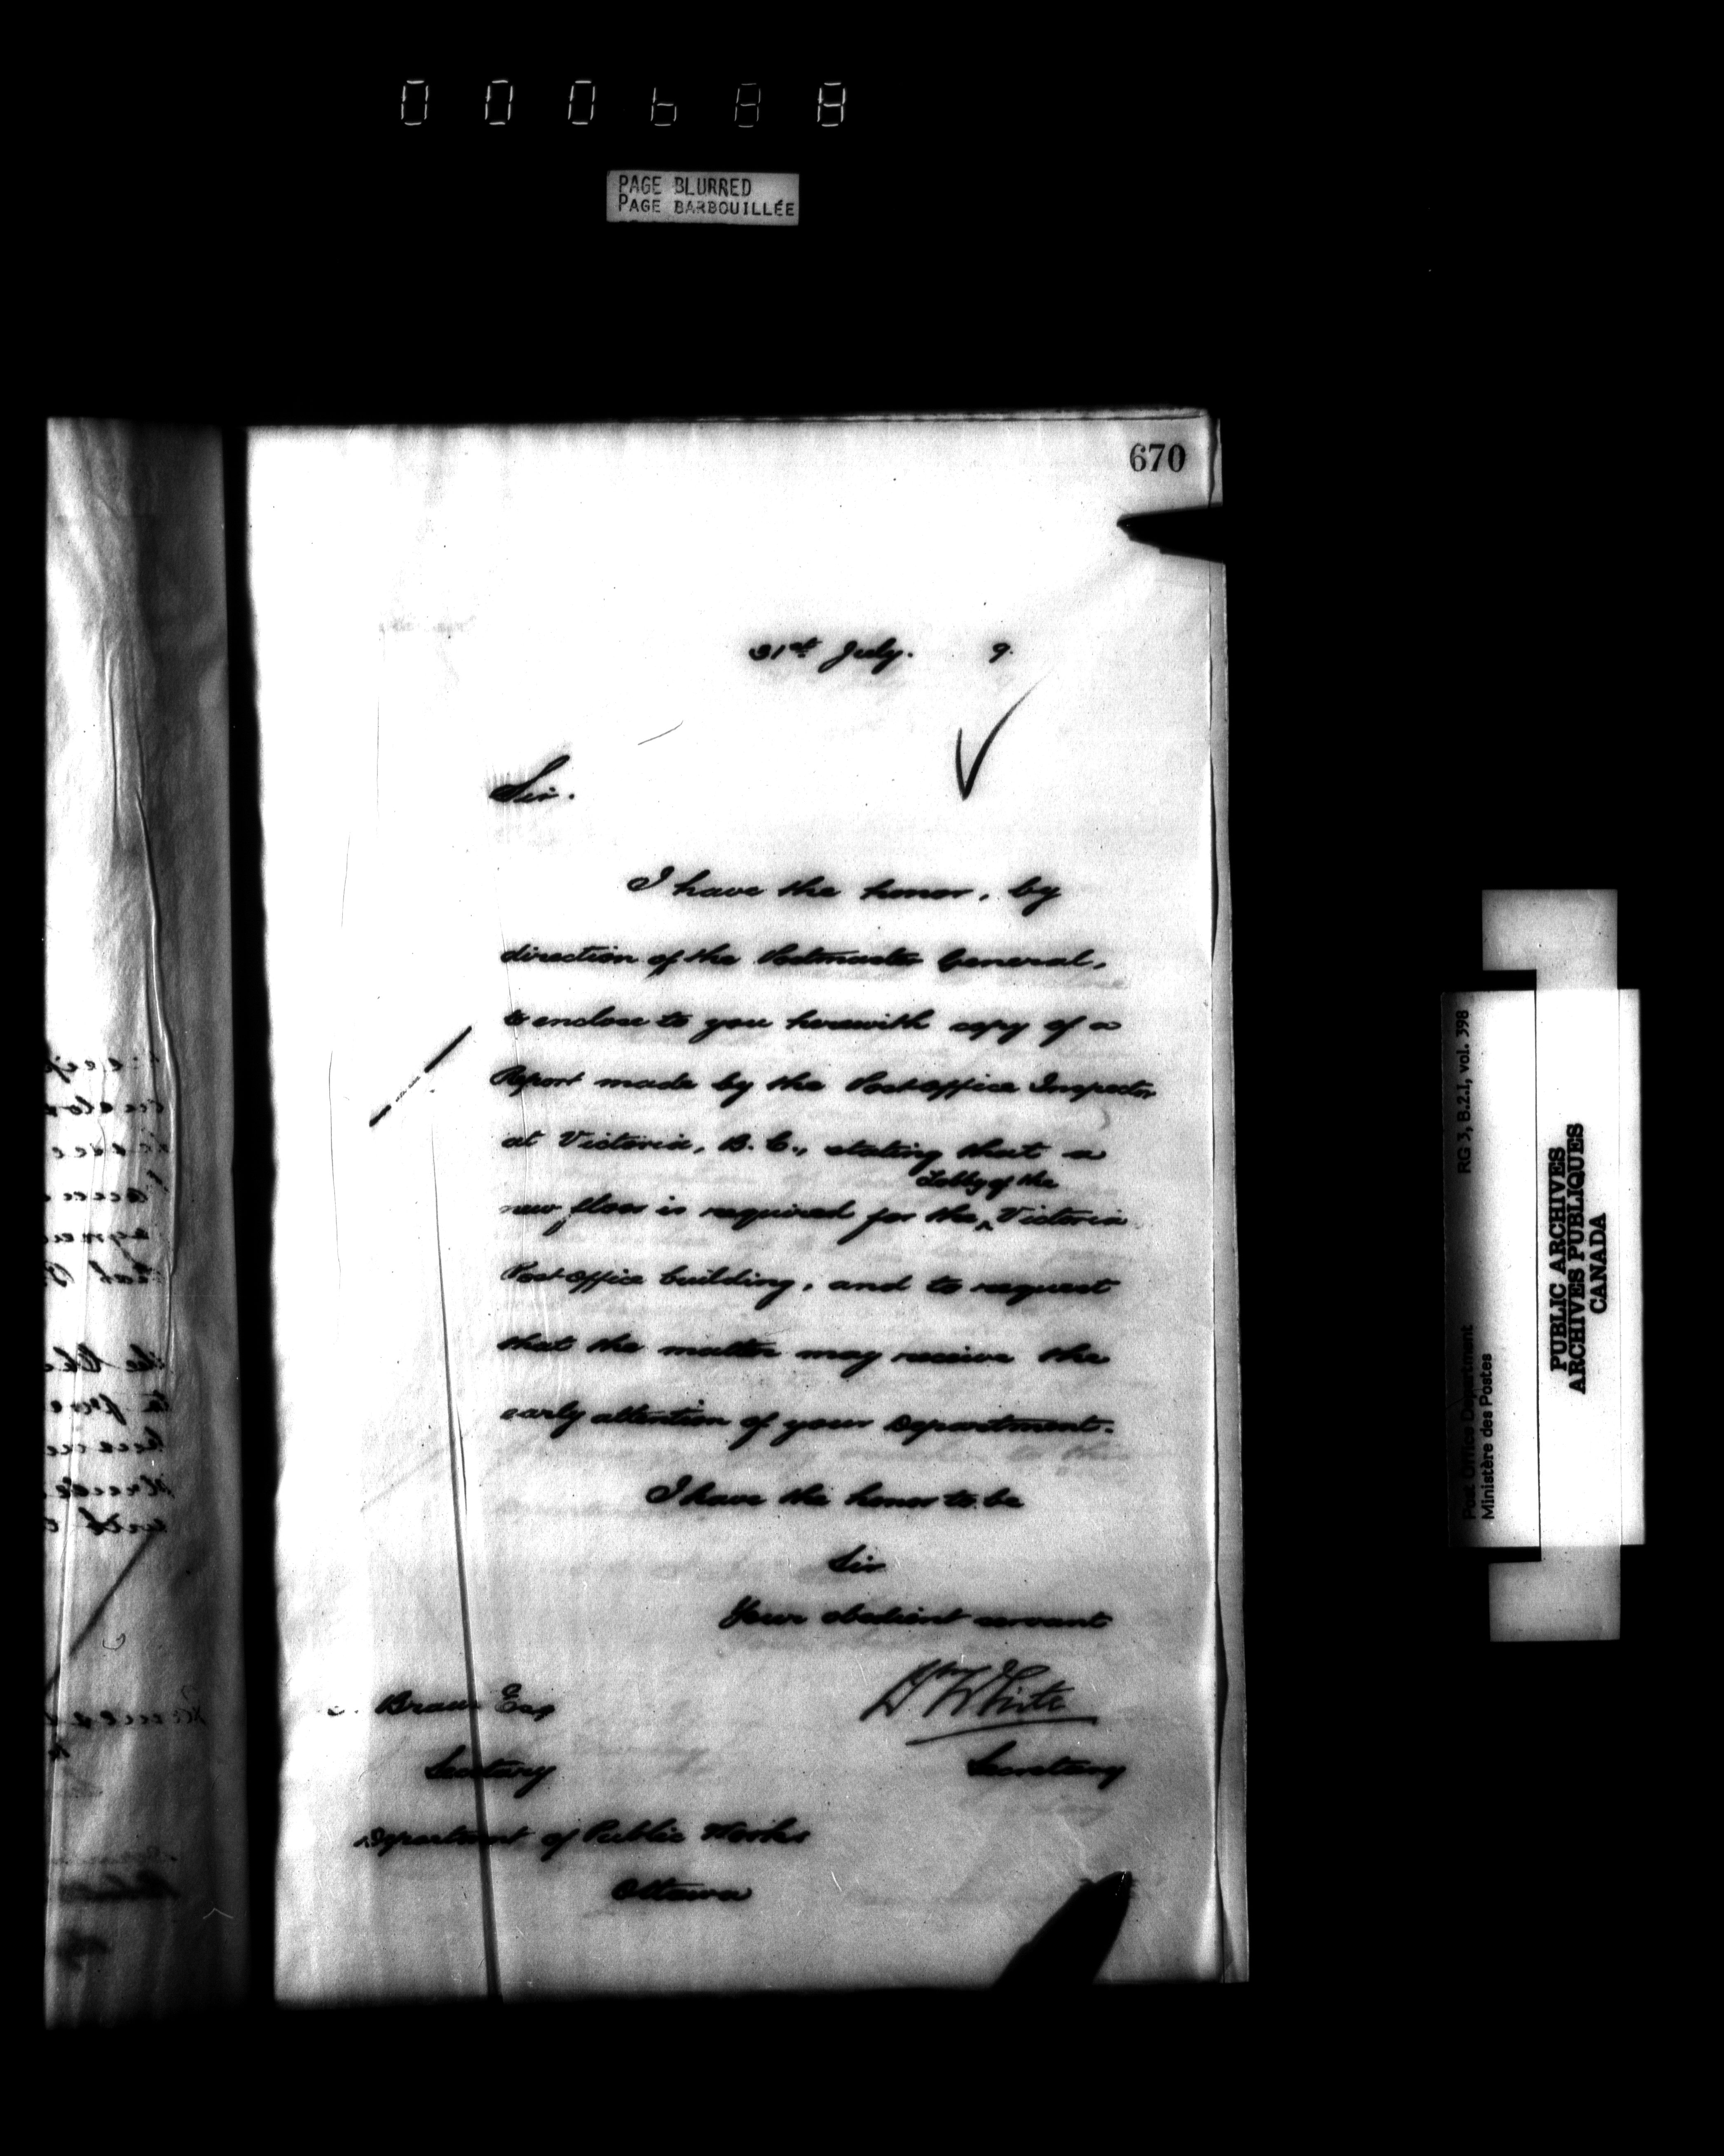 000688
PAGE BLURRED
PAGE BARBOUILLÉE
670
31st July. 9.
Sir.
I have the honor, by
direction of the Postmaster General,
to enclose to you herewith copy of a
Report made by the Post Office Inspector
at Victoria, B.C., stating that a
Lobby of the
new floor is required for the ^ Victoria
Post Office building, and to request
that the matter may receive the
early attention of your Department.
I have the honor to be
Sir
Your obedient servant
Wm White
Secretary
Braun Esq
Secretary
Department of Public Works
Ottawa
RG 3, B.2.1, vol. 398
Post Office Department
Ministère des Postes
PUBLIC ARCHIVES
ARCHIVES PUBLIQUES
CANADA